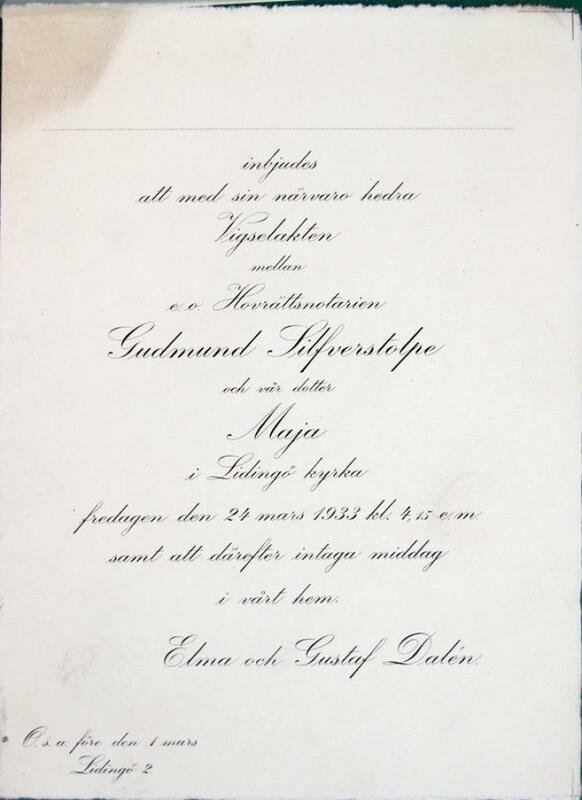 inbjudes
att med sin närvaro hedra
Vigselakten
mellan
e.o. Hovrättsnotarien
Gudmund Silfverstolpe
och vår dotter
Maja
i Lidingö kyrka
fredagen den 24 mars 1933 kl. 4,15 e.m.
samt att därefter intaga middag
i vårt hem.
Elma och Gustaf Dalén.
O. s. a. före den 1 mars
Lidingö 2.